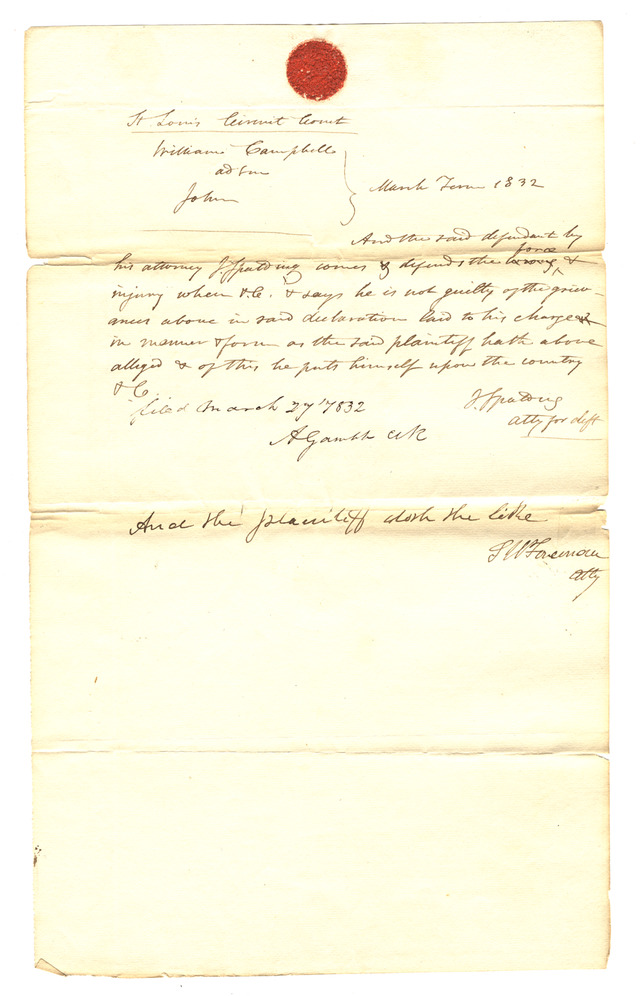 St Louis Circuit Court
William Campbell
ads
John
March Term 1832
And the said defendant by
his attorney J Spalding comes & defends the wrong force &
injury when &C. & says he is not guilty of the griev-
ances above in said declaration laid to his charge
in manner & form as the said plaintiff hath above
alleged & of this he puts himself upon the country
&C.
J. Spalding
atty for deft
filed March 27th 1832
A Gamble clk
And the plaintiff doth the like
atty